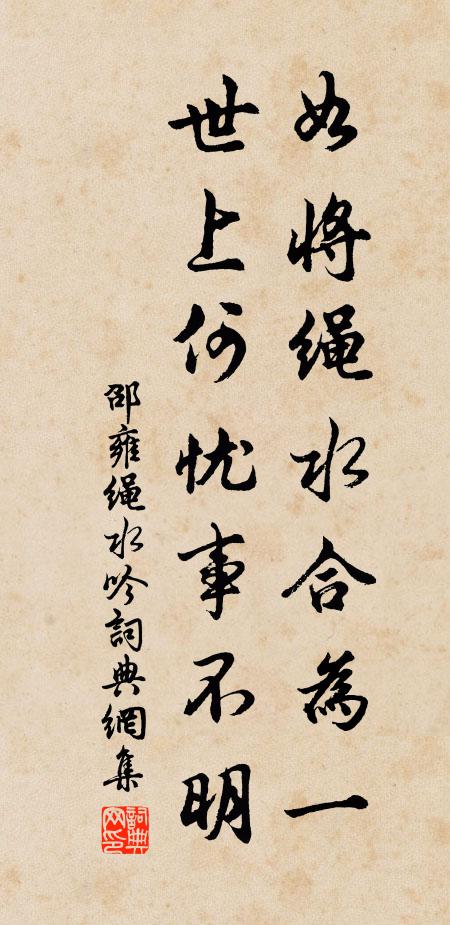 如将绳水合為一
世上何忧事不明
邵雍绳水吟詞典網集
詞典网印